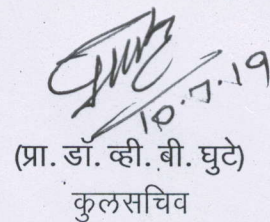 10.7.19
(प्रा. डॉ. व्ही. बी. घुटे)
कुलसचिव